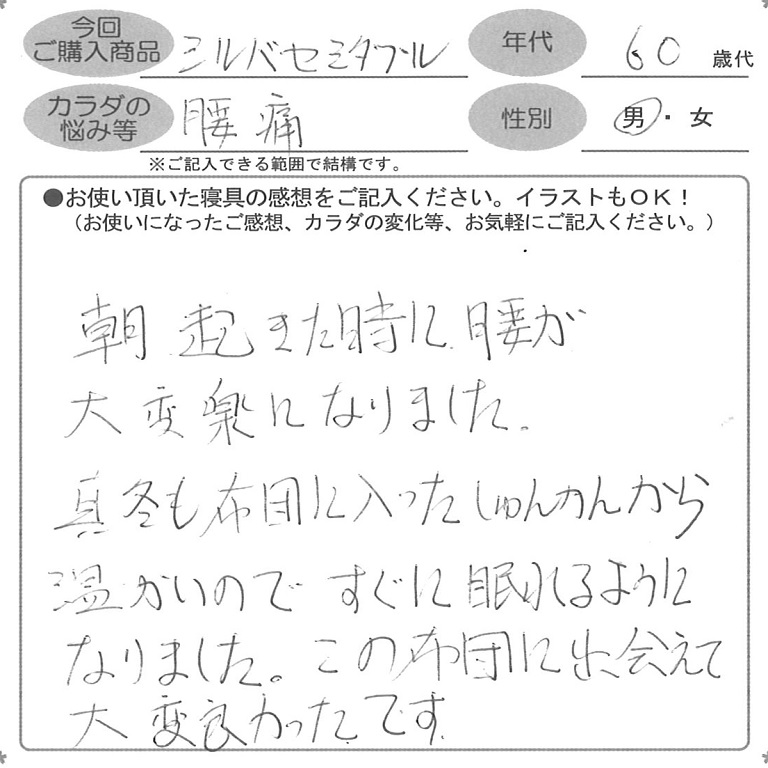 今回
ご購入商品
シルバセミダブル
年代
60 歳代
カラダの
悩み等
腰痛
性別
男・女
※ご記入できる範囲で結構です。
●お使い頂いた寝具の感想をご記入ください。イラストもOK！
（お使いになったご感想、カラダの変化等、お気軽にご記入ください。）
朝起きた時に腰が
大変楽になりました。
真冬も布団に入ったしゅんかんから
温かいのですぐに眠れるように
なりました。この布団に出会えて
大変良かったです